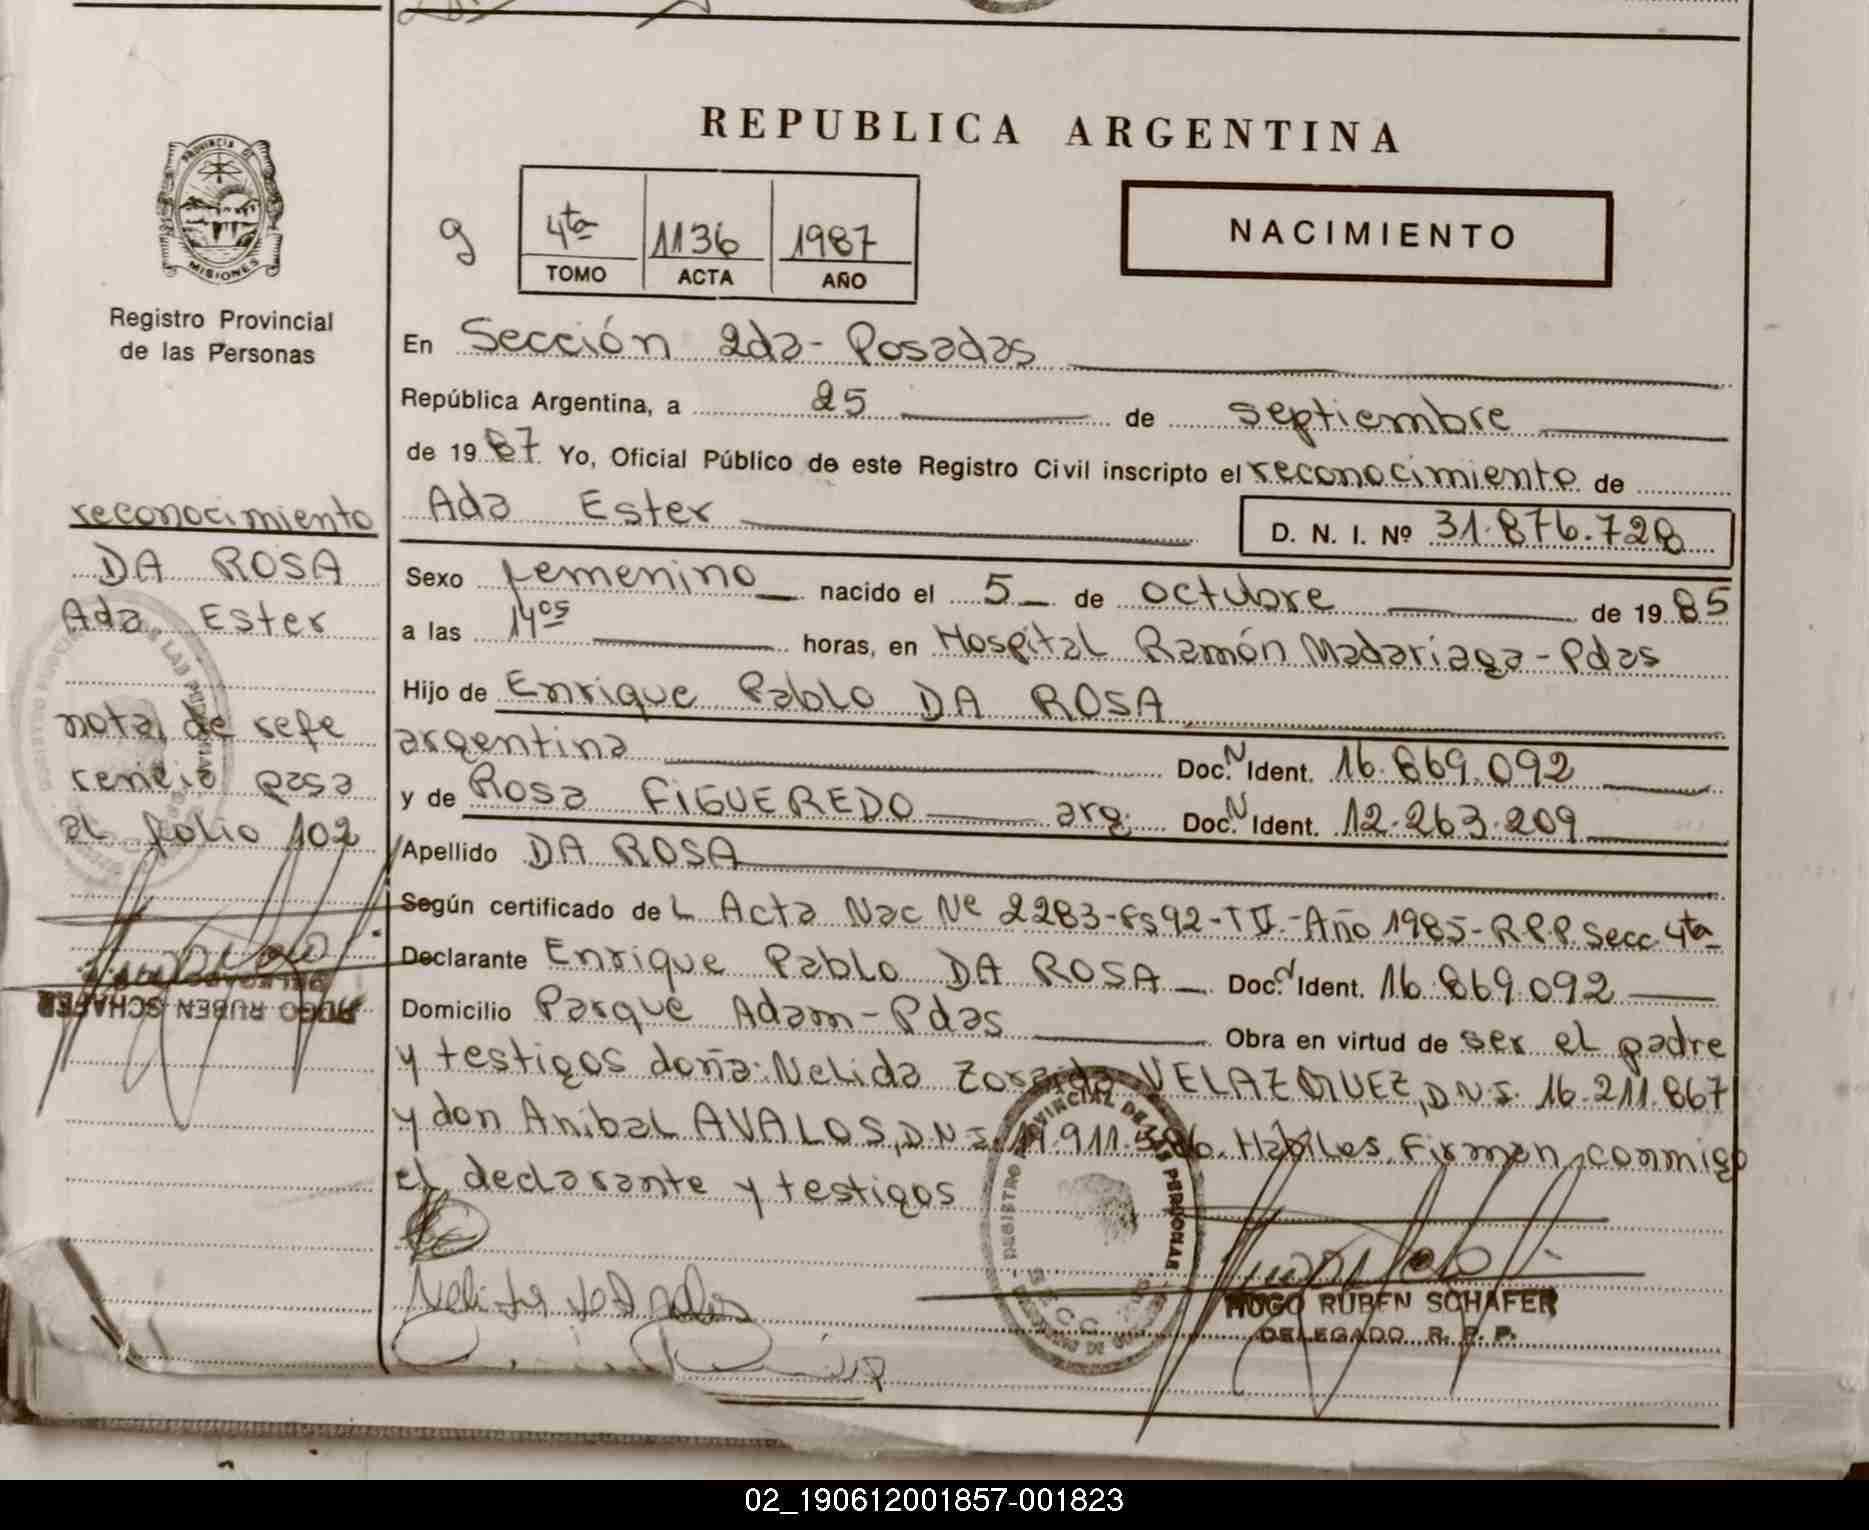 REPUBLICA ARGENTINA
PROVINCIA DE
MISIONES
Registro Provincial
de las Personas
g
4ta 1136 1987
TOMO ACTA AÑO
NACIMIENTO
En Sección 2da - Posadas
República Argentina, a 25 de septiembre
de 1987 Yo, Oficial Público de este Registro Civil inscripto el reconocimiento de
Ada Ester D. N. I. Nº 31.876.728
Sexo femenino nacido el 5 de octubre de 1985
a las 14 05 horas, en Hospital Ramón Madariaga - Pdas
Hijo de Enrique Pablo DA ROSA
argentina Doc. N Ident. 16.869.092
y de Rosa FIGUEREDO arg. Doc. N Ident. 12.263.209
Apellido DA ROSA
Según certificado de L Acta Nac Nº 2283-Fs92-TII-Año 1985-R.P.P. Secc 4ta
Declarante Enrique Pablo DA ROSA Doc. N Ident. 16.869.092
Domicilio Parque Adam - Pdas Obra en virtud de ser el padre
y testigos doña: Nelida Zoraida VELAZQUEZ, D.N.I. 16.211.867
y don Anibal AVALOS, D.N.I. Habiles. Firman conmigo
el declarante y testigos
HUGO RUBEN SCHAFER
DELEGADO R. P. P.
reconocimiento
DA ROSA
Ada Ester
nota de refe
rencia pasa
al folio 102
HUGO RUBEN SCHAFER
02_190612001857-001823